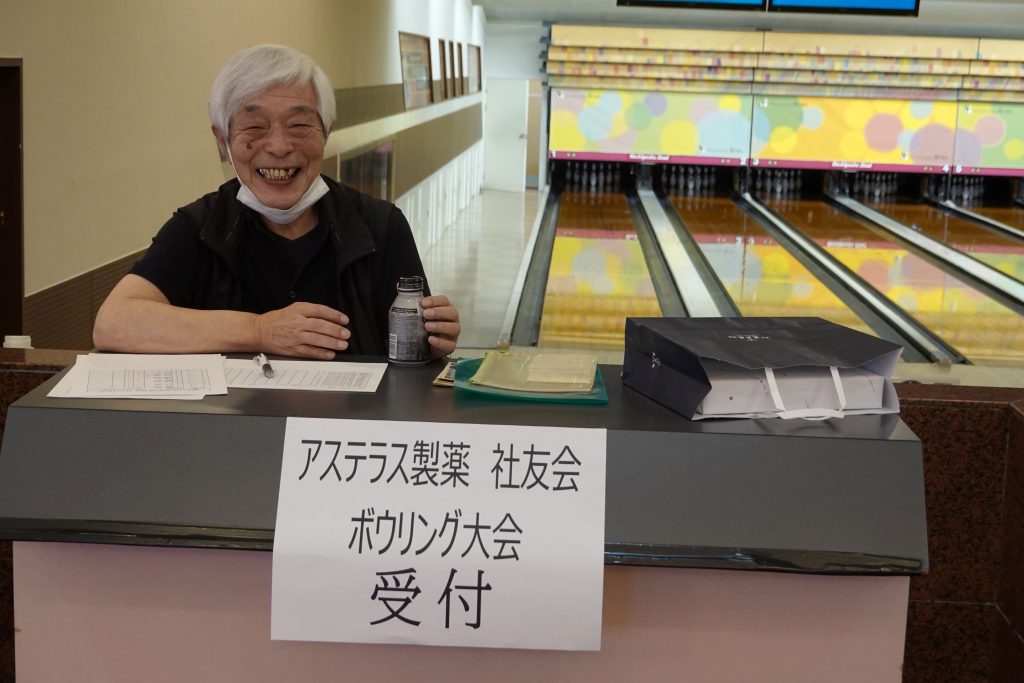 アステラス製薬 社友会
ボウリング大会
受付